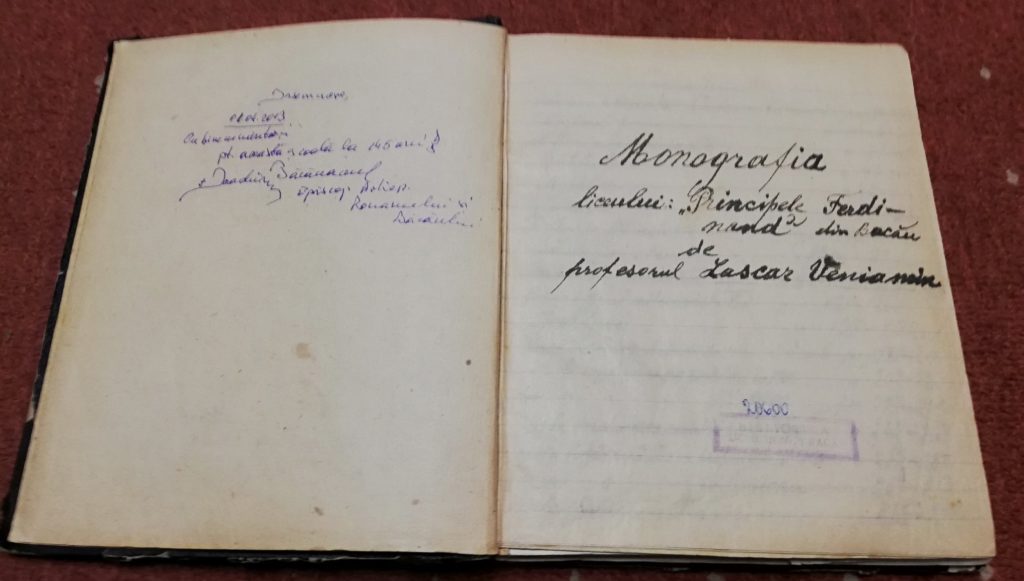 Însemnare,
Cu binecuvântări
pt. această școală la 145 ani!
+ Ioachim Băcăuanul
Episcop
Romanului și
Bacăului
Monografia
liceului: „Principele Ferdi-
nand” din Bacău
de
profesorul Lascar Veniamin
20600